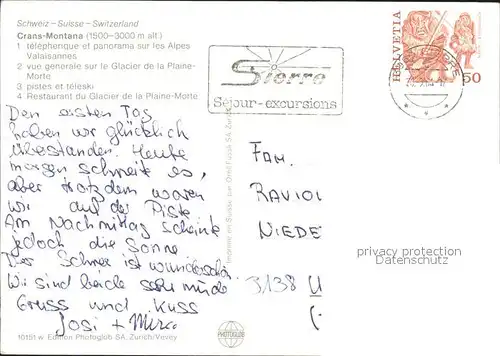 Schweiz - Suisse - Switzerland
Crans-Montana (1500-3000 m alt.)
1 téléphérique et panorama sur les Alpes
Valaisannes
2 vue generale sur le Glacier de la Plaine-
Morte
3 pistes et téleski
4 Restaurant du Glacier de la Plaine-Morte
Den ersten Tag
haben wir glücklich
überstanden. Heute
morgen schneite es,
aber trotzdem waren
wir auf der Piste
Am Nachmittag scheinte
jedoch die Sonne
Der Schnee ist wunderschön.
Wir sind beide sehr müde
Gruss und Kuss
Josi + Mirco
10151 w Edition Photoglob SA, Zürich/Vevey
PHOTOGLOB
Sierre
Séjour-excursions
HELVETIA
50
FAM.
RAVIOL
NIEDE
3138 U
privacy protection
Datenschutz